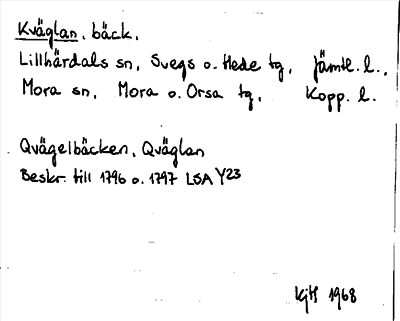 Kväglan, bäck.
Lillhärdals sn, Svegs o. Hede tg, Jämtl. l.,
Mora sn, Mora o. Orsa tg, Kopp. l.
Qvägelbäcken, Qväglan
Beskr. till 1796 o. 1797 LSA Y23
KjH 1968